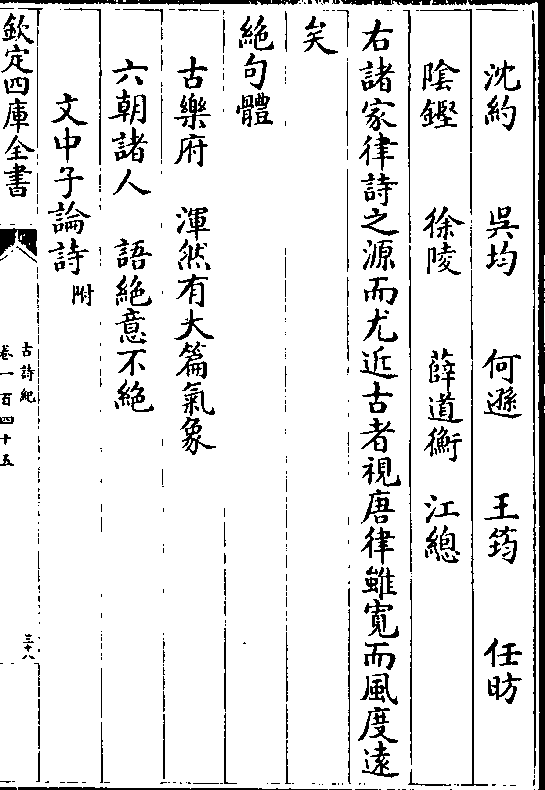 沈約 吳均 何遜 王筠 任昉
陰鏗 徐陵 薛道衡 江總
右諸家律詩之源而尤近古者視唐律雖寬而風度遠
矣
絕句體
古樂府 渾然有大篇氣象
六朝諸人 語絕意不絕
文中子論詩附
欽定四庫全書
古詩紀
卷一百四十五
三十八